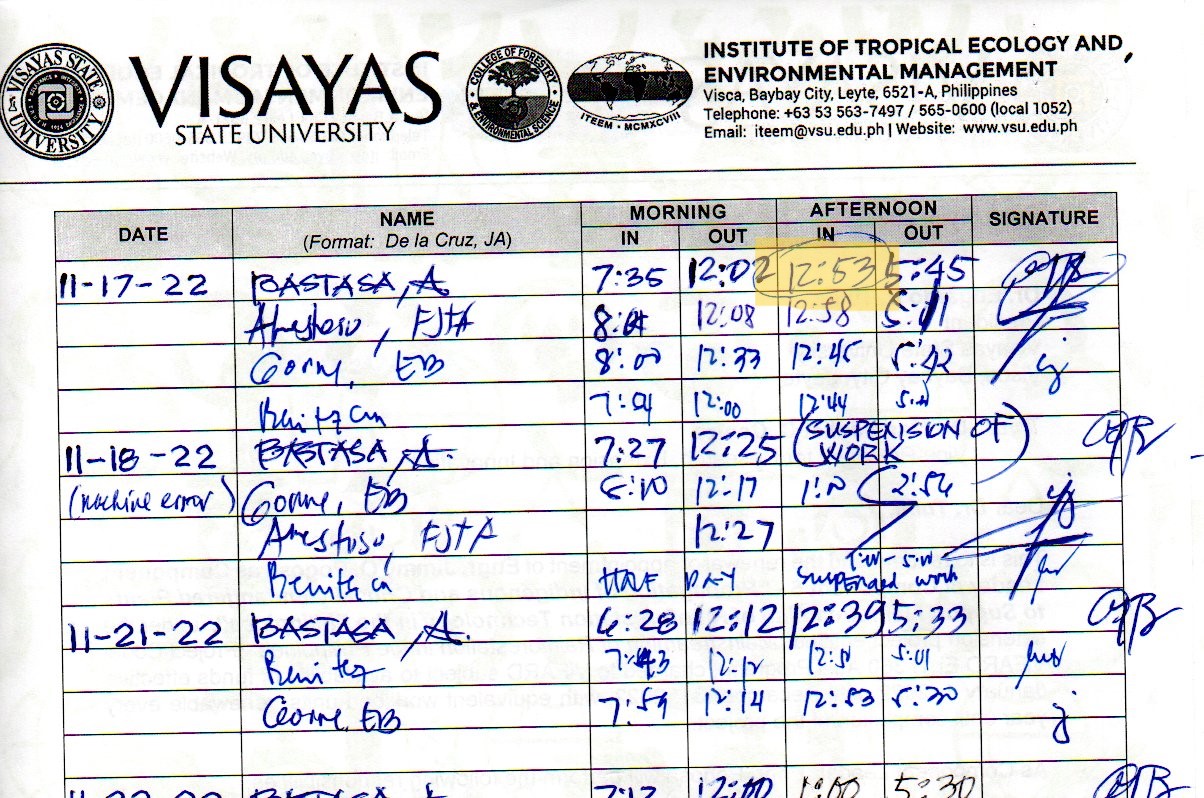 VISAYAS
STATE UNIVERSITY
VISAYAS STATE UNIVERSITY
COLLEGE OF FORESTRY & ENVIRONMENTAL SCIENCE
ITEEM • MCMXCVIII
INSTITUTE OF TROPICAL ECOLOGY AND
ENVIRONMENTAL MANAGEMENT
Visca, Baybay City, Leyte, 6521-A, Philippines
Telephone: +63 53 563-7497 / 565-0600 (local 1052)
Email: iteem@vsu.edu.ph | Website: www.vsu.edu.ph
DATE NAME MORNING AFTERNOON SIGNATURE
(Format: De la Cruz, JA) IN OUT IN OUT
11-17-22 BASTASA, A. 7:35 12:02 12:53 5:45
FJTA 12:08 12:58
Gorne, EB 8:00 12:33 12:45 5:42
12:00 12:44
11-18-22 BASTASA, A. 7:27 12:25 (SUSPENSION OF WORK)
(machine error) Gorne, EB 8:10 12:17 2:54
FJTA 12:27
HALF DAY suspended work
11-21-22 BASTASA, A. 6:28 12:12 12:39 5:33
Benitez 7:43 12:12 5:01
Gorne, EB 7:59 12:14 12:53 5:20
BASTASA, A. 12:00 1:00 5:30